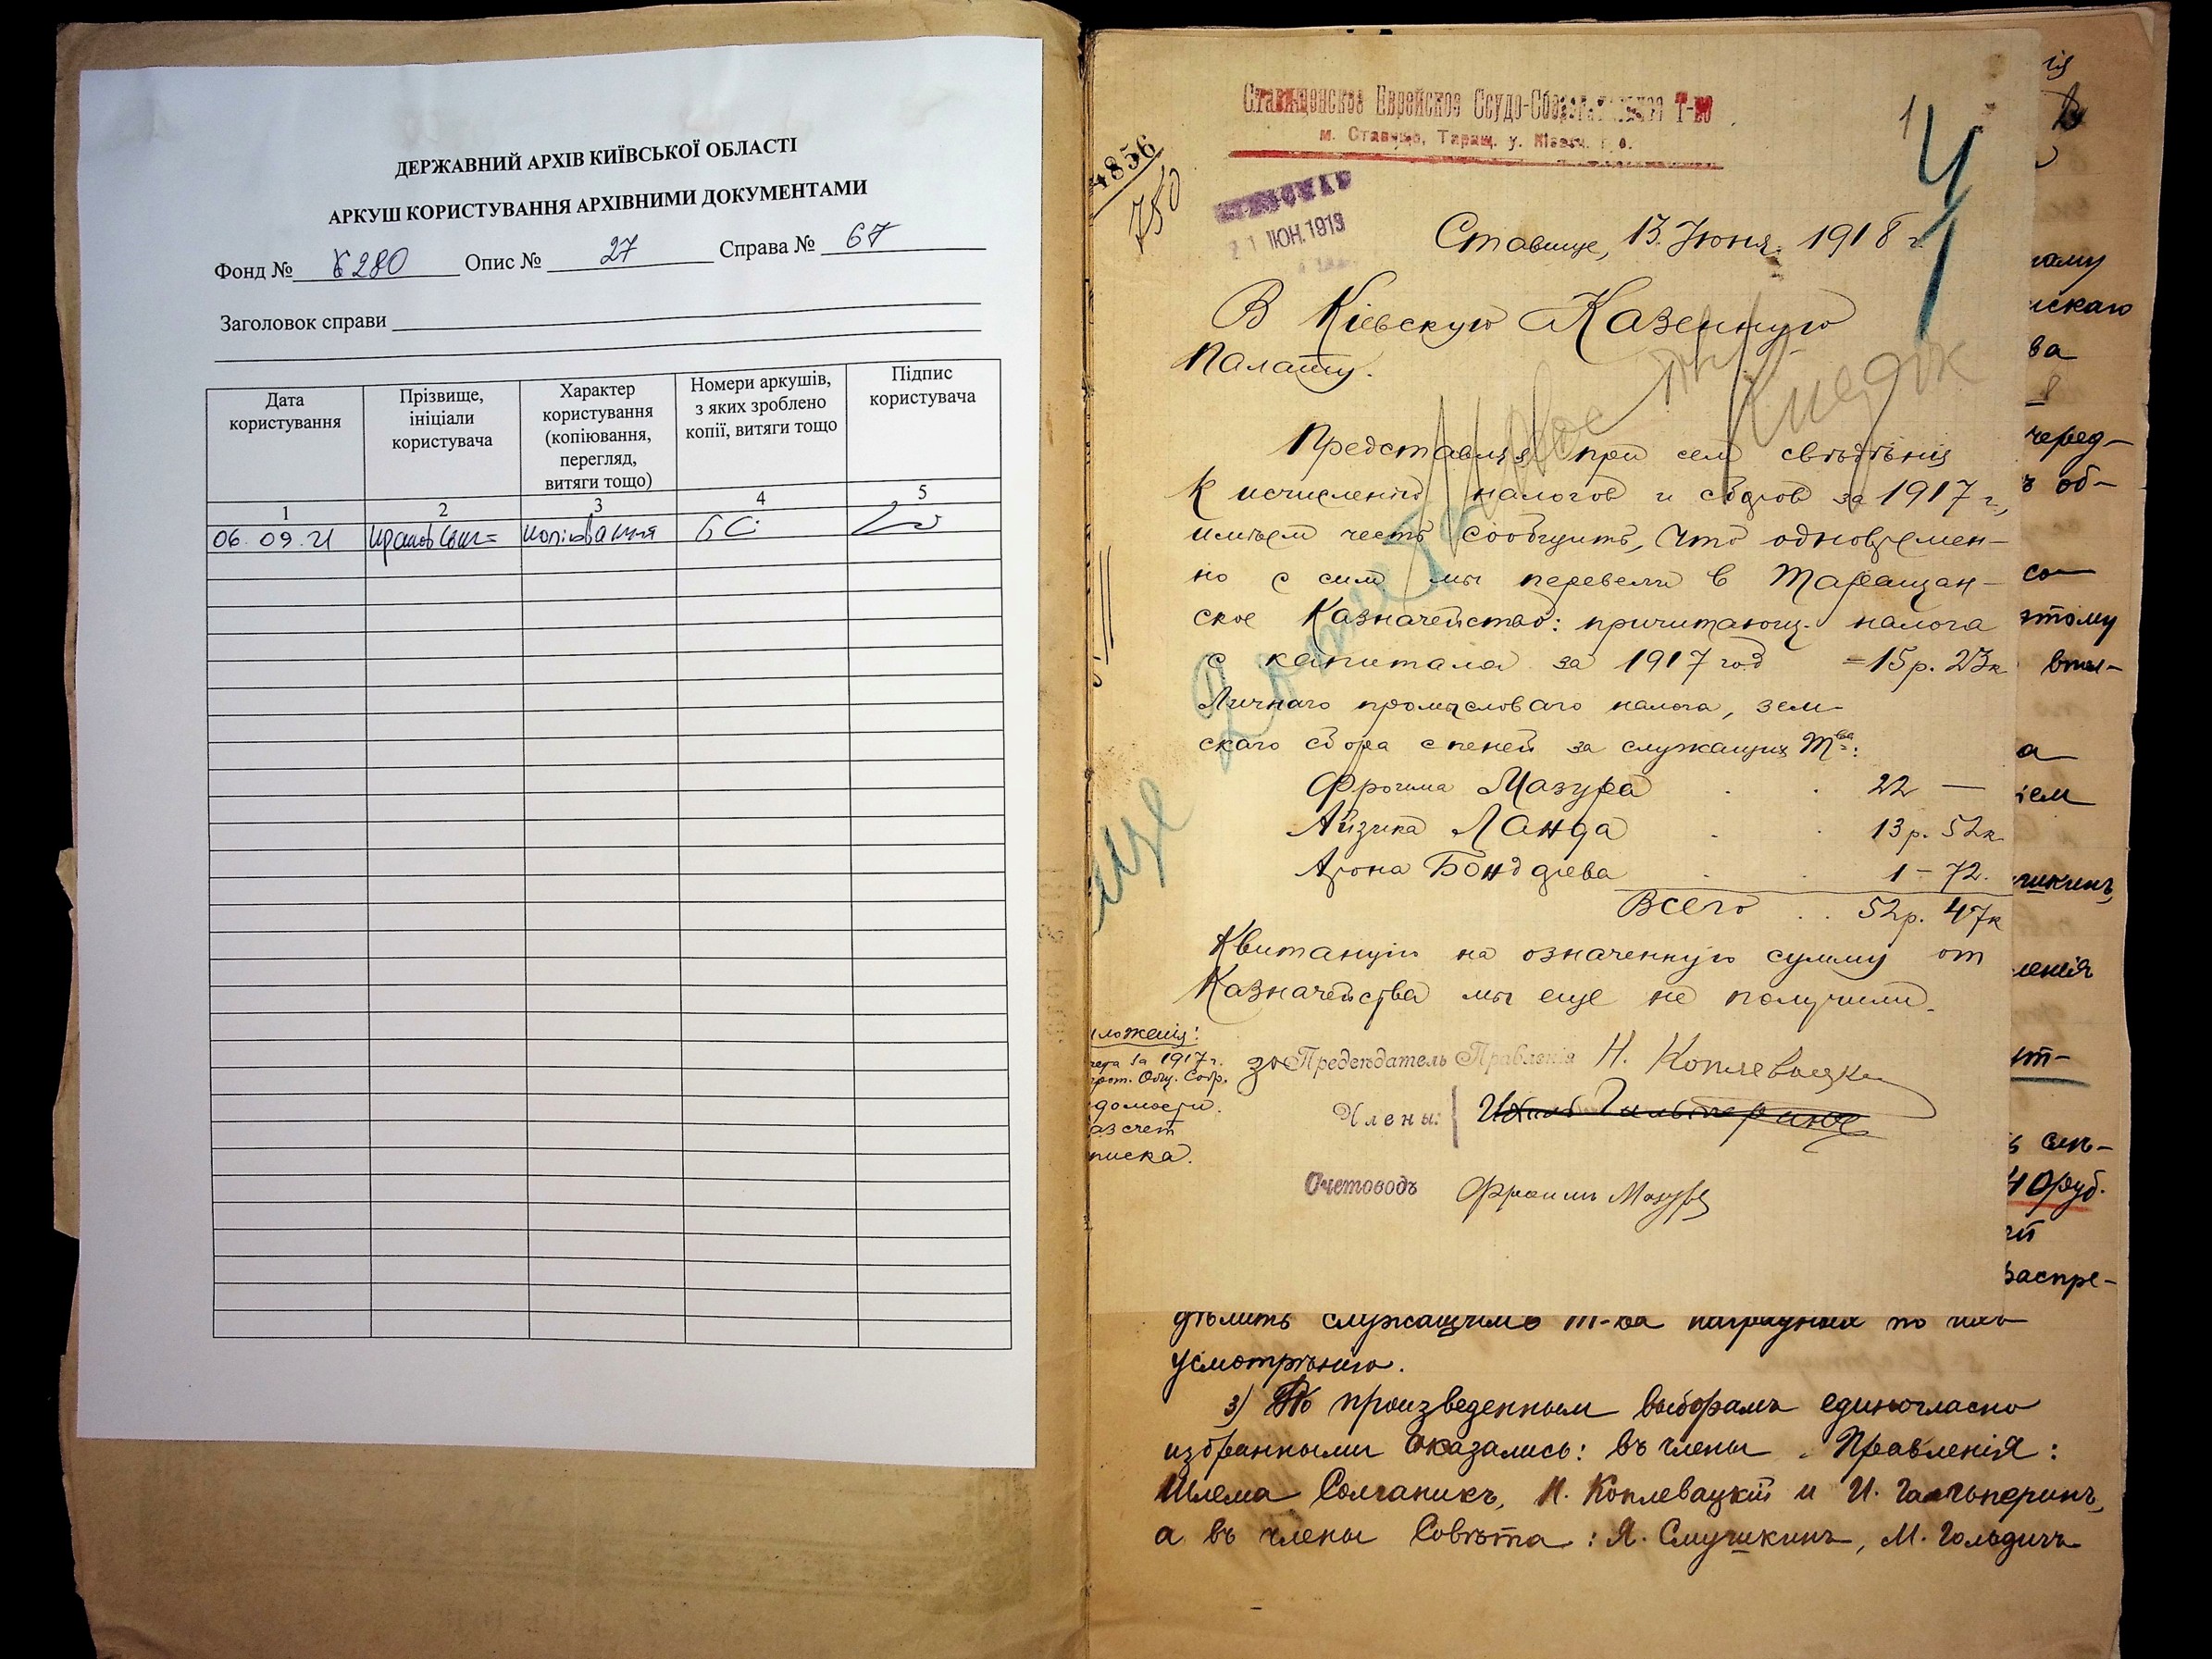 ДЕРЖАВНИЙ АРХІВ КИЇВСЬКОЇ ОБЛАСТІ
АРКУШ КОРИСТУВАННЯ АРХІВНИМИ ДОКУМЕНТАМИ
Фонд № 280 Опис № 27 Справа № 67
Заголовок справи
Дата користування
Прізвище, ініціали користувача
Характер користування (копіювання, перегляд, витяги тощо)
Номери аркушів, з яких зроблено копії, витяги тощо
Підпис користувача
1 2 3 4 5
06.09.21 копіювання
Ставищенское Еврейское Ссудо-Сберегательное Т-во
м. Ставище, Таращ. у. Кіевск. г.
4856
750
1 ІЮН. 1918
1
Ставище, 13 Июня 1918 г.
В Кіевскую Казенную
Палату.
Представляя при сем свѣдѣнія
к исчисленію налогов и сборов за 1917 г.,
имѣем честь сообщить, что одновремен-
но с сим мы перевели в Таращан-
ское Казначейство: причитающ. налога
с капитала за 1917 год = 15р. 23к
Личнаго промысловаго налога, зем-
скаго сбора с пеней за служащих Т-ва:
Фроима Мазура . . 22 —
Айзика Ланда . . 13р. 52к
Арона Бондарева . . 1 - 72.
Всего . . 52р. 47к
Квитанцію на означенную сумму от
Казначейства мы еще не получили.
ложенія:
за 1917 г.
рот. Общ. Собр.
домости.
азсчет
писка.
за Предсѣдатель Правленія Н. Коплевацкій
Члены:
Счетоводъ Фроимъ Мазуръ
дѣлить служащимъ т-ва наградныя по ихъ
усмотрѣнію.
3) По произведенным выборамъ единогласно
избранными оказались: въ члены Правленія:
Шлема Солганикъ, Н. Коплевацкій и И. Гальперинъ,
а въ члены Совѣта: Я. Смушкинъ, М. Гольдичъ